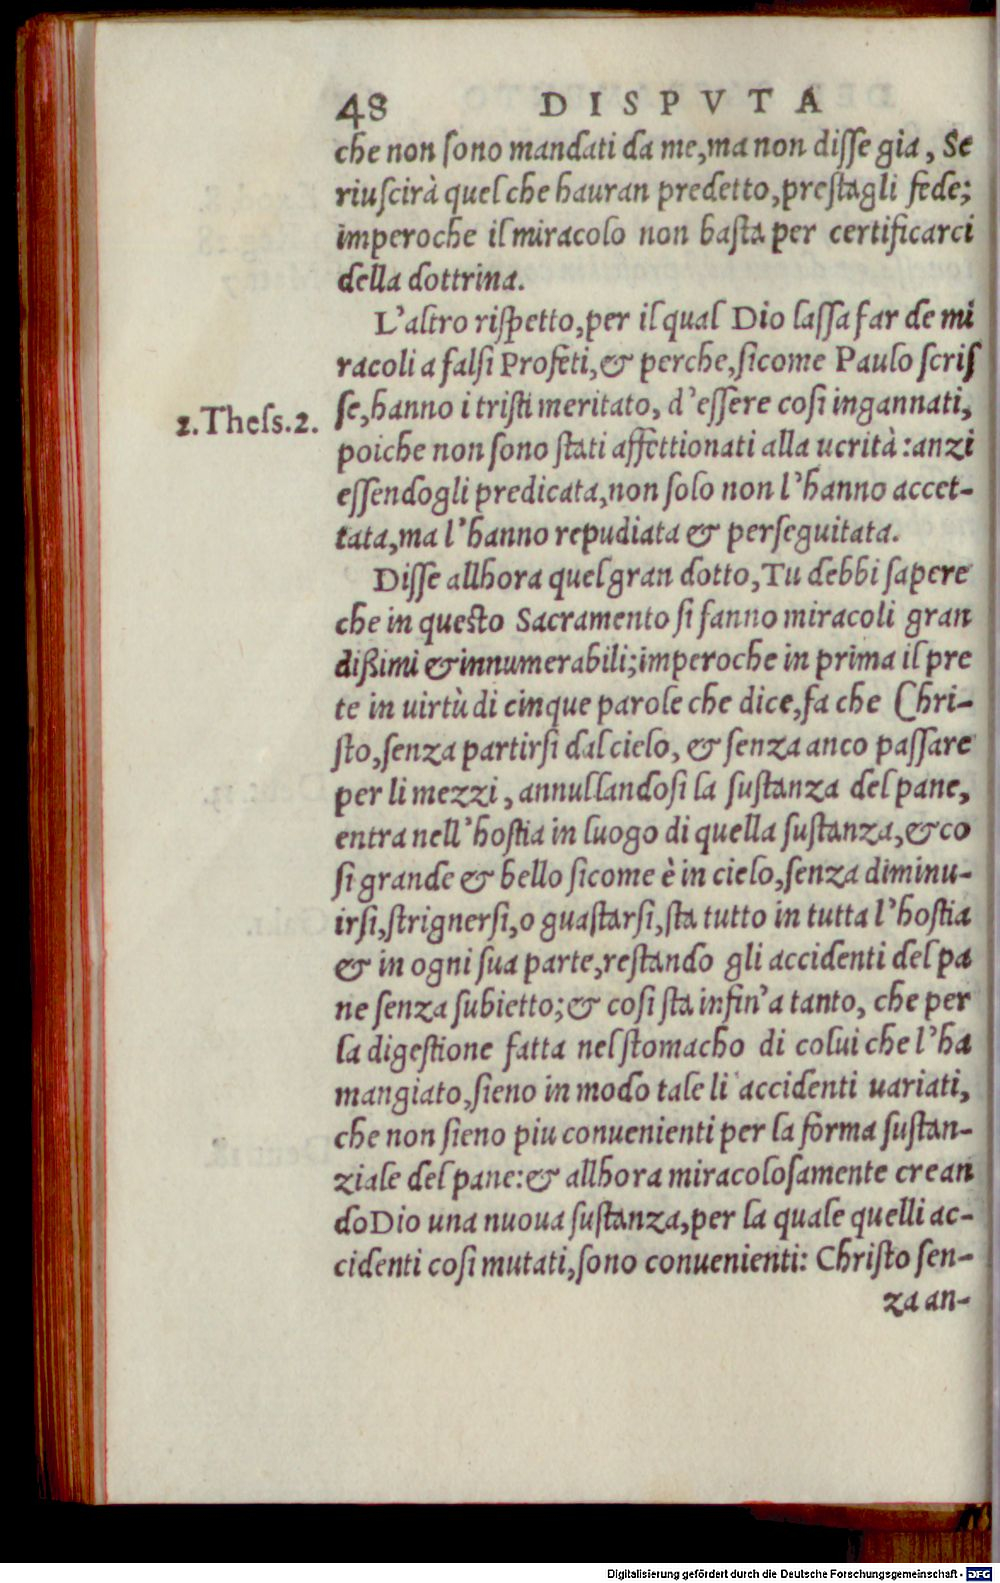 48 DISPVTA
che non ſono mandati da me, ma non diſſe gia, Se
riuſcirà quel che hauran predetto, preſtagli fede;
imperoche il miracolo non baſta per certificarci
della dottrina.
L'altro riſpetto, per il qual Dio laſſa far de mi
racoli a falſi Profeti, & perche, ſicome Paulo ſcriſ
2.Theſs.2. ſe, hanno i triſti meritato, d'eſſere coſi ingannati,
poiche non ſono ſtati affettionati alla uerità: anzi
eſſendogli predicata, non ſolo non l'hanno accet-
tata, ma l'hanno repudiata & perſeguitata.
Diſſe allhora quel gran dotto, Tu debbi ſapere
che in queſto Sacramento ſi fanno miracoli gran
dißimi & innumerabili; imperoche in prima il pre
te in uirtù di cinque parole che dice, fa che Chri-
ſto, ſenza partirſi dal cielo, & ſenza anco paſſare
per li mezzi, annullandoſi la ſuſtanza del pane,
entra nell'hoſtia in luogo di quella ſuſtanza, & co
ſi grande & bello ſicome è in cielo, ſenza diminu-
irſi, ſtrignerſi, o guaſtarſi, ſta tutto in tutta l'hoſtia
& in ogni ſua parte, reſtando gli accidenti del pa
ne ſenza ſubietto; & coſi ſta infin'a tanto, che per
la digeſtione fatta nel ſtomacho di colui che l'ha
mangiato, ſieno in modo tale li accidenti uariati,
che non ſieno piu conuenienti per la forma ſuſtan-
ziale del pane: & allhora miracoloſamente crean
do Dio una nuoua ſuſtanza, per la quale quelli ac-
cidenti coſi mutati, ſono conuenienti: Chriſto ſen-
za an-
Digitalisierung gefördert durch die Deutsche Forschungsgemeinschaft - DFG